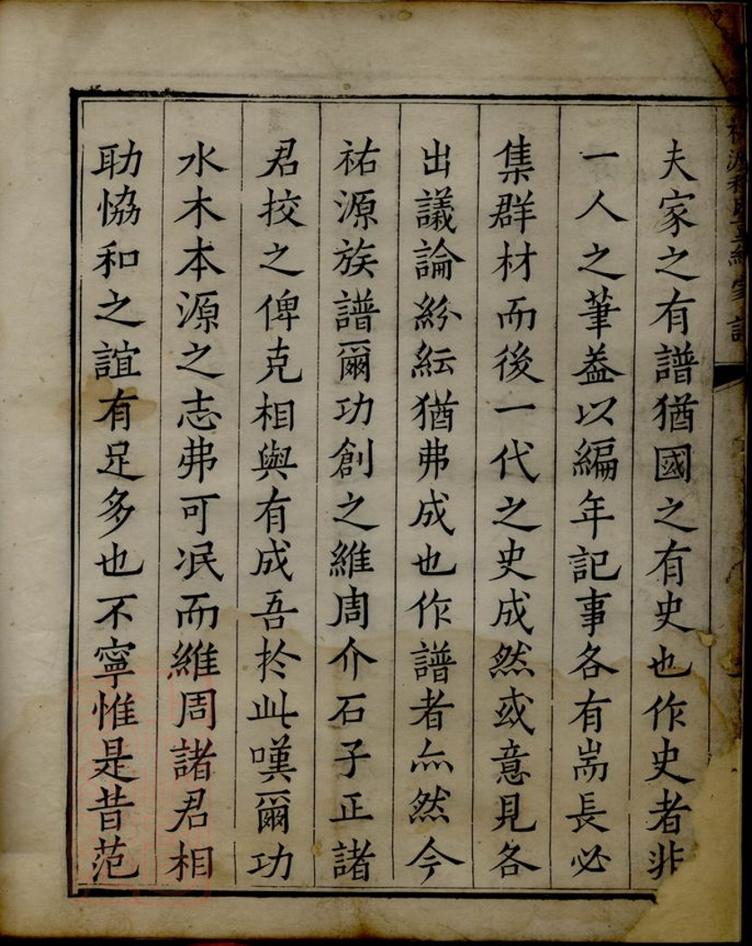 夫家之有譜猶國之有史也作史者非
一人之筆葢以編年記事各有耑長必
集群材而後一代之史成然或意見各
出議論紛紜猶弗成也作譜者亦然今
祐源族譜爾功創之維周介石子正諸
君挍之俾克相與有成吾扵此嘆爾功
水木本源之志弗可泯而維周諸君相
助恊和之誼有足多也不寧惟是昔范